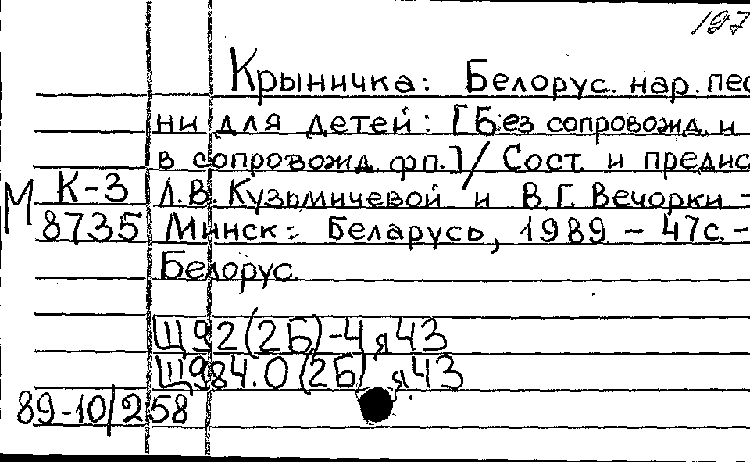 197
Крыничка: Белорус. нар. пес
ни для детей: [Без сопровожд. и
в сопровожд. фп.] / Сост. и предис
М К-3 Л.В. Кузьмичевой и В.Г. Вечорки -
8735 Минск: Беларусь, 1989 - 47с. -
Белорус.
Щ92(2Б)-4я43
Щ984.0(2Б)я43
89-10/258